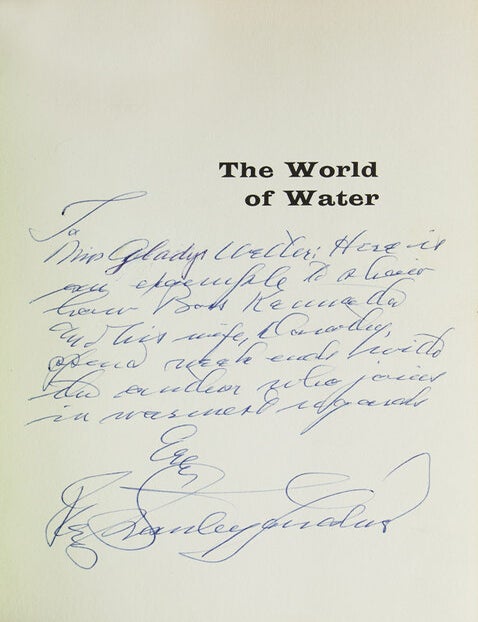 The World
of Water
To
Miss Gladys Weller: Here is
an example to show
how Bob Kennedy
and his wife, Dorothy,
spend week ends with
the author who joins
in warmest regards
Ever
Stanley